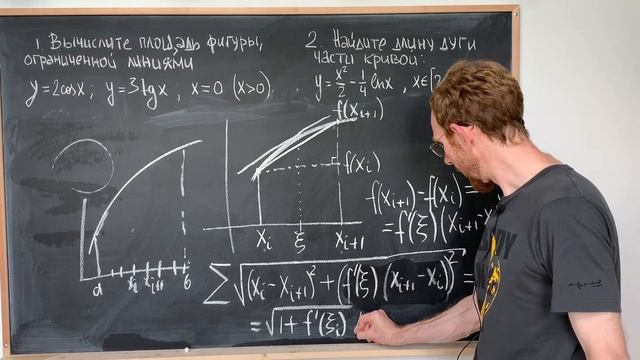 1. Вычислите площадь фигуры,
ограниченной линиями
y=2cosx; y=3tgx; x=0 (x>0).
2. Найдите длину дуги
части кривой:
y=x²/2-1/4 lnx, x∈[2
f(x_{i+1})
f(x_i)
x_i ξ x_{i+1}
a x_i x_{i+1} b
f(x_{i+1})-f(x_i)=
=f'(ξ)(x_{i+1}-x
∑√((x_i-x_{i+1})²+(f'(ξ)(x_{i+1}-x_i))²)=
=√(1+f'(ξ_i)